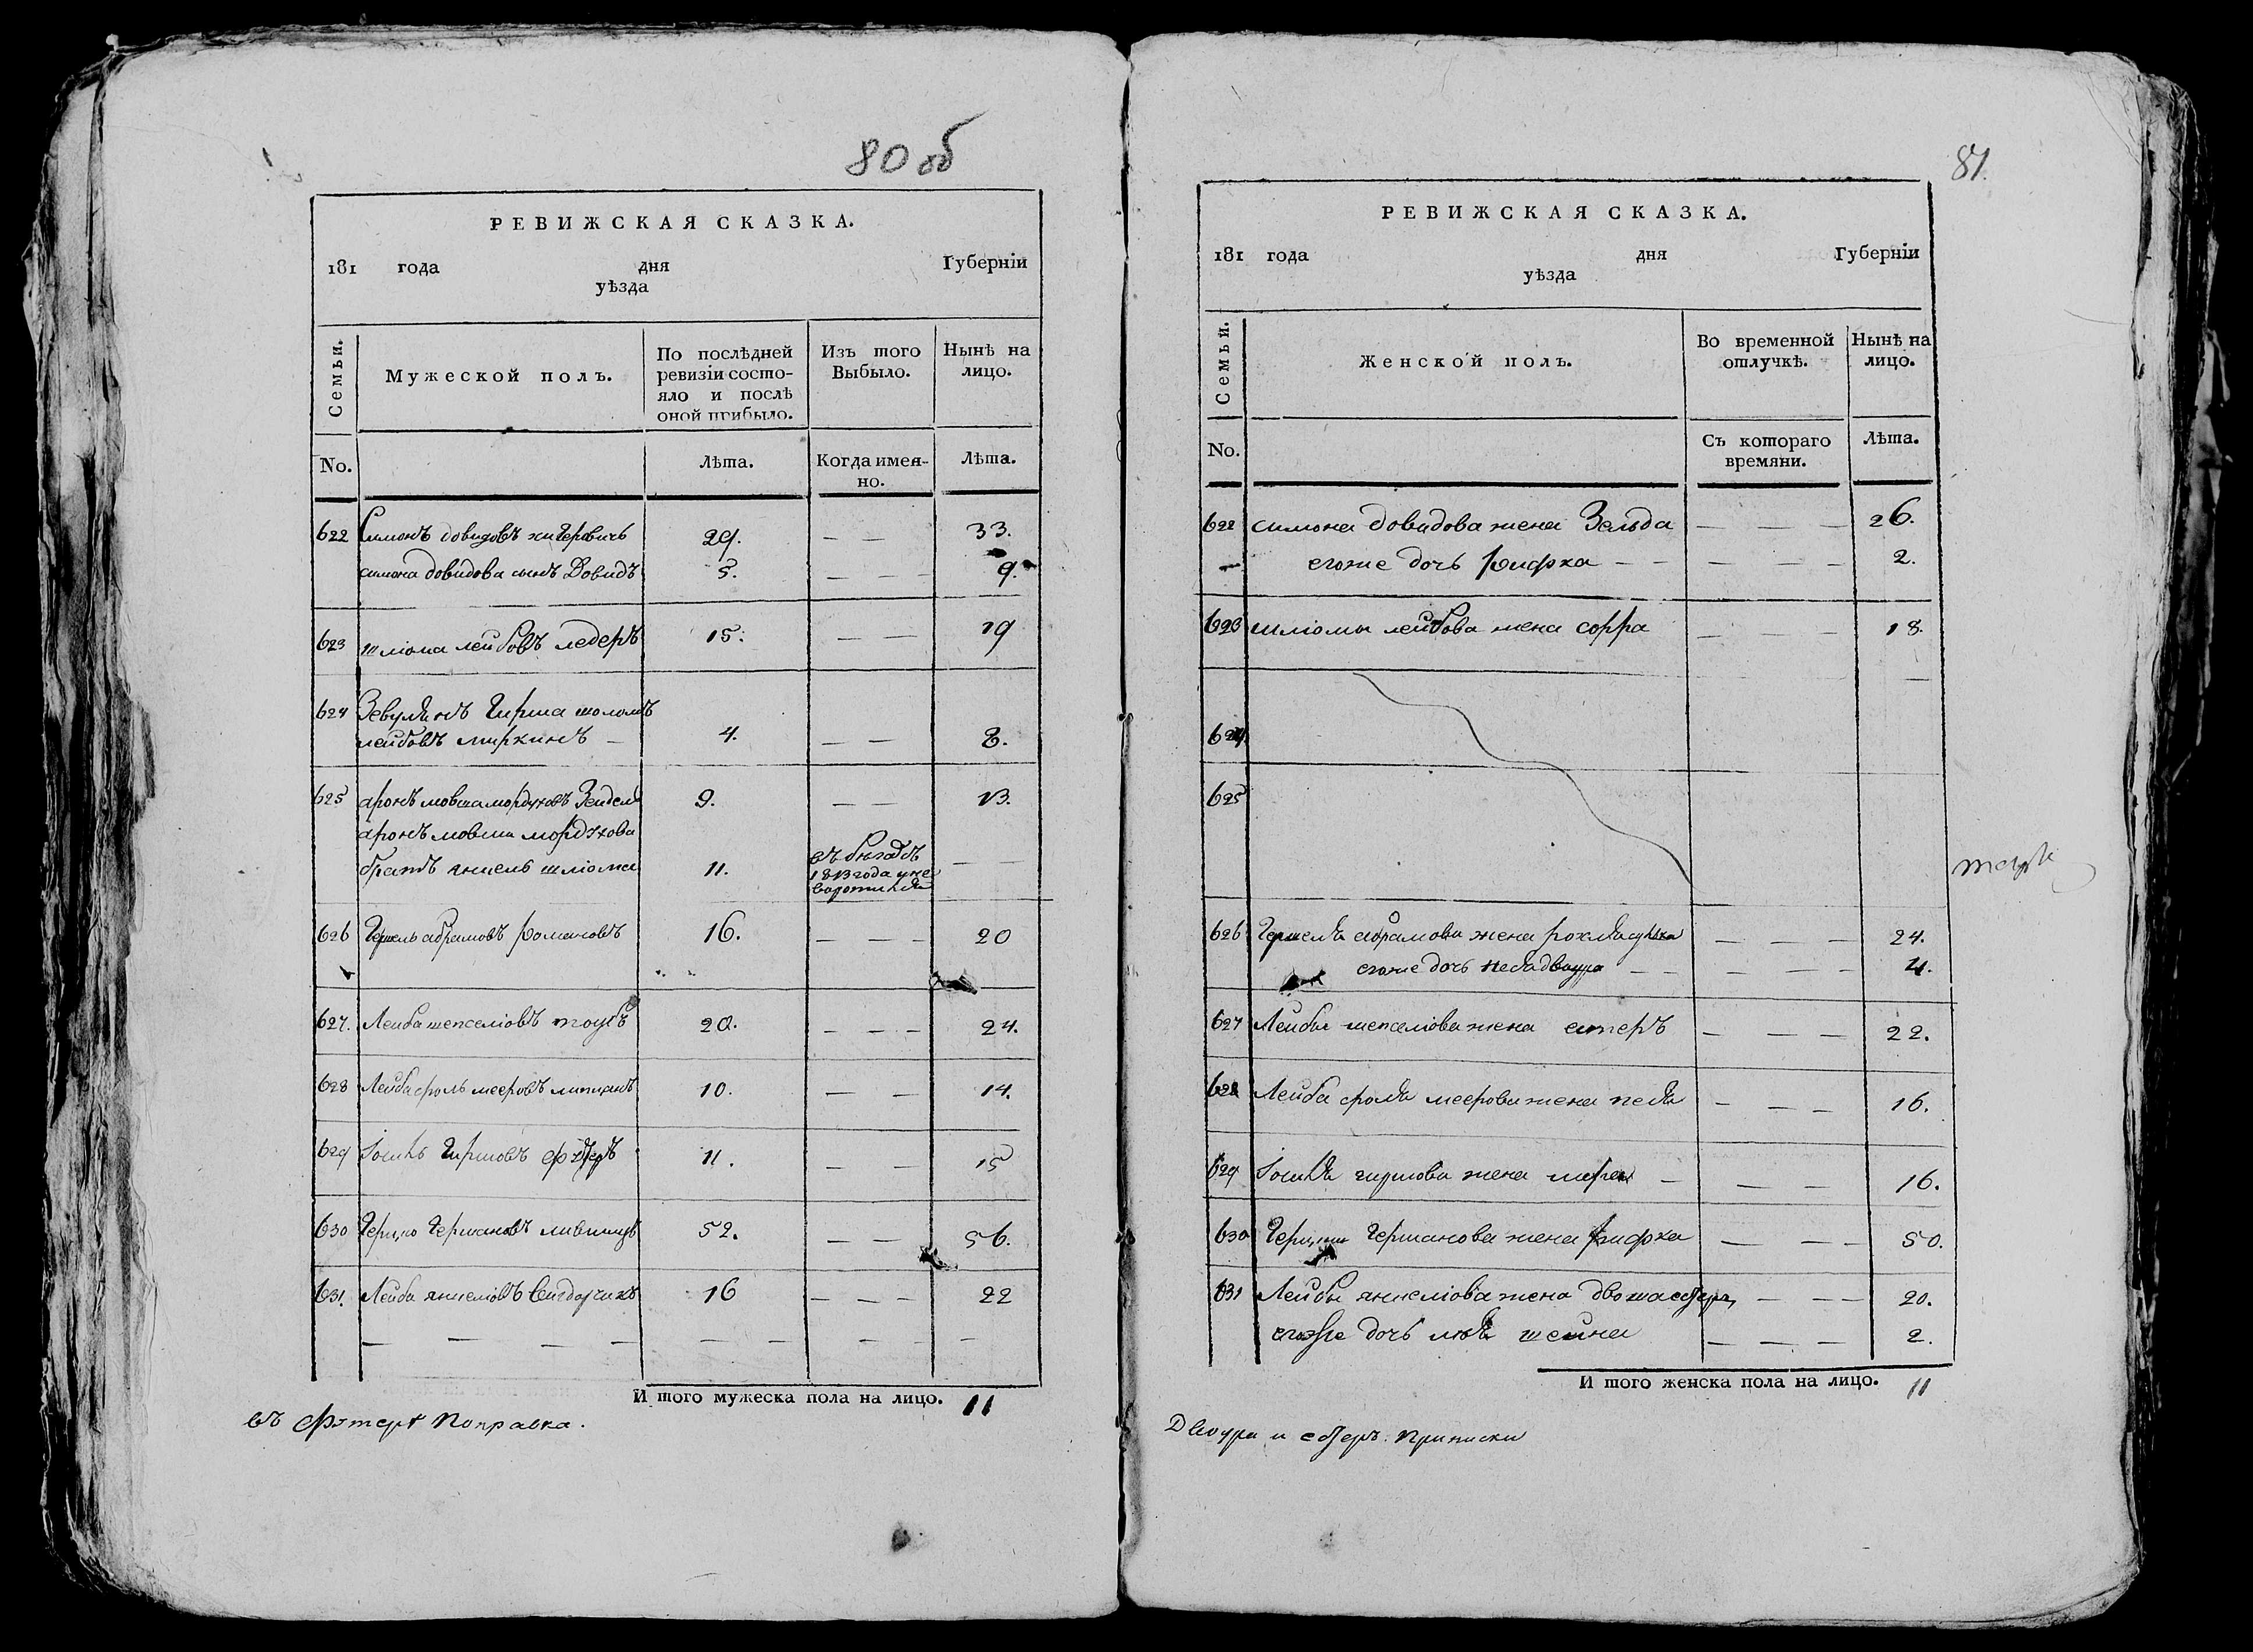 80 об
РЕВИЖСКАЯ СКАЗКА.
181 года дня Губерніи
уѣзда
Семьи. Мужеской полъ. По послѣдней ревизіи состо-яло и послѣ оной прибыло. Изъ того Выбыло. Нынѣ на лицо.
No. Лѣта. Когда имен-но. Лѣта.
622 Симонъ довидовъ хигеровичъ 29. — — 33.
симона довидова сынъ Довидъ 5. — — — 9.
623 шліома лейбовъ ледеръ 15. — — 19
624 Зевулинъ Гирша шоломъ
лейбовъ миркинъ — 4. — — 8.
625 аронъ мовша мордуховъ Зендель 9. — — 13.
аронъ мовши мордухова
братъ янкель шліома 11. въ бѣгахъ — —
1813 года и не
воротился
626 Гершель абрамовъ романовъ 16. — — — 20
627. Лейба шепселіовъ тоубъ 20. — — — 24.
628 Лейба сроль мееровъ липманъ 10. — — 14.
629 Іосиль Гиршовъ 11. — — 15
630 Герцко Германовъ лившицъ 52. — — 56.
631. Лейба янкеліовъ 16 — — — 22
— — — — — — — — —
И того мужеска пола на лицо. 11
въ фэтеръ поправка.
81.
РЕВИЖСКАЯ СКАЗКА.
181 года дня Губерніи
уѣзда
Семьи. Женской полъ. Во временной отлучкѣ. Нынѣ на лицо.
No. Съ котораго времяни. Лѣта.
622 симона довидова жена Зельда — — — 26.
егоже дочь рифка — — — — — 2.
623 шліомы лейбова жена сорра — — — 18.
624
625
626 Гершеля абрамова жена рохля — — — 24.
егоже дочь песя двоура — — — — — 4.
627 Лейбы шепселіова жена естеръ — — — 22.
628 Лейба сроля меерова жена песя — — — 16.
629 Іосиля гиршова жена — — — — 16.
630 Герцки Германова жена рифка — — — 50.
631 Лейбы янкеліова жена двоша естеръ, — — — 20.
егоже дочь шейна — — — 2.
И того женска пола на лицо. 11
Двоура и естеръ приписки